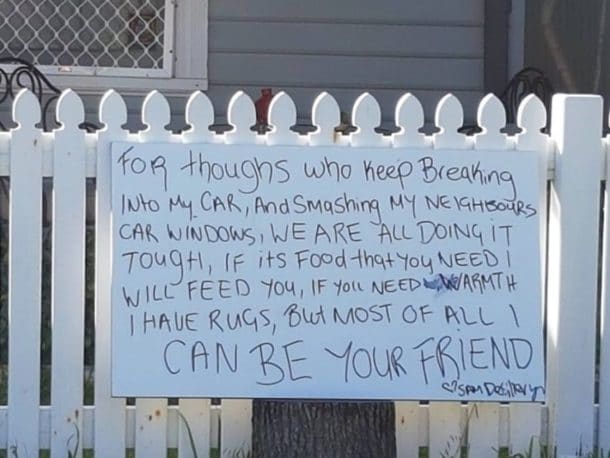 FOR thoughs who keep Breaking
INto My CAR, And Smashing MY NEIGHBOURS
CAR WINDOWS, WE ARE ALL DOING IT
TOUGH, IF its Food that You NEED I
WILL FEED YOU, IF YOU NEED WARMTH
I HAVE RUGS, But MOST OF ALL I
CAN BE YOUR FRIEND